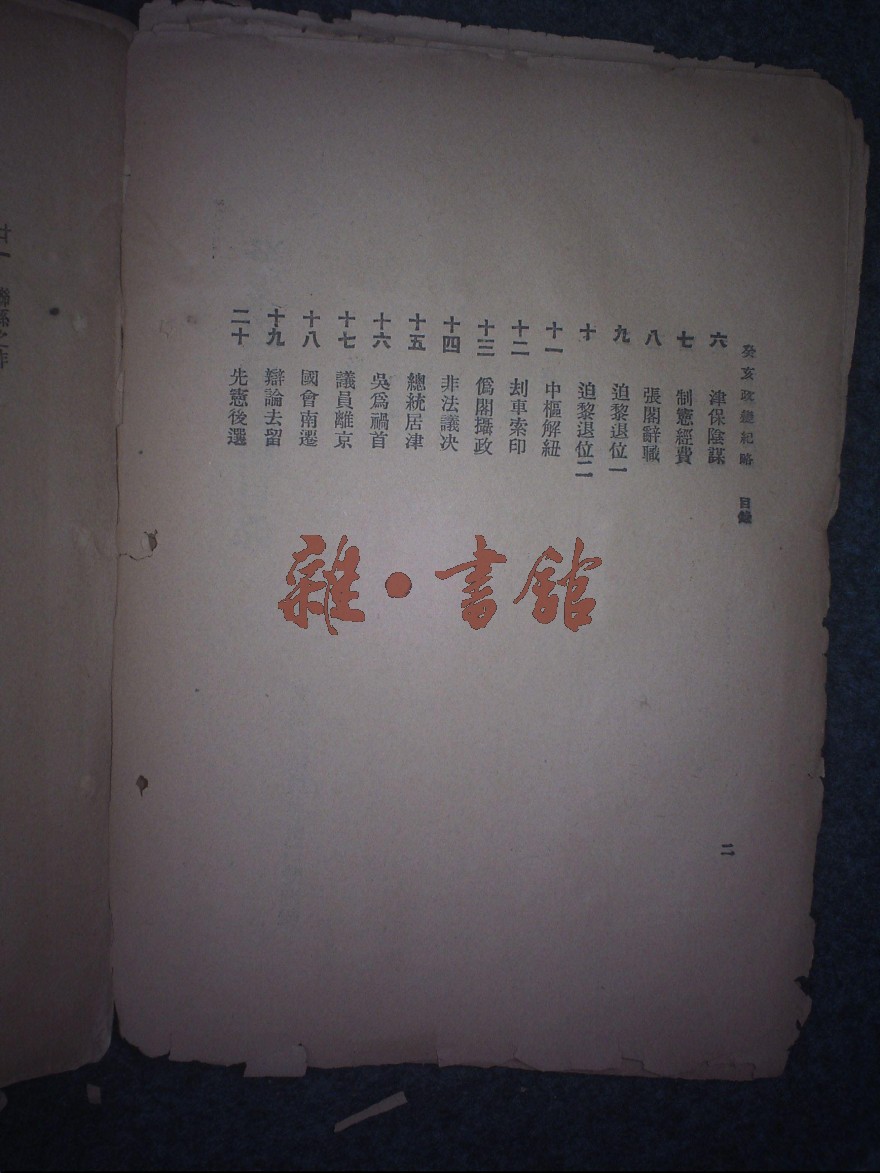 癸亥政變紀略 目錄
六 津保陰謀
七 制憲經費
八 張閣辭職
九 迫黎退位一
十 迫黎退位二
十一 中樞解紐
十二 刦車索印
十三 僞閣攝政
十四 非法議决
十五 總統居津
十六 吳爲禍首
十七 議員離京
十八 國會南遷
十九 辯論去留
二十 先憲後選
二
廿一
雜·書館